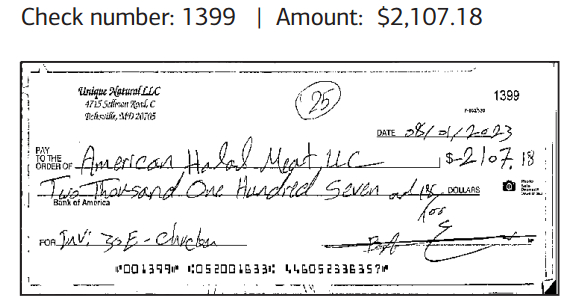 Check number: 1399 | Amount: $2,107.18
Unique Natural LLC
4715 Sellman Road, C
Beltsville, MD 20705
25
1399
DATE 08/01/2023
PAY TO THE ORDER OF American Halal Meat, LLC $-2107.18
Two Thousand One Hundred Seven and 18/100 DOLLARS
Bank of America
FOR Inv: 30E - Chicken
⑈001399⑈ ⑆052001633⑆ 446052336357⑈